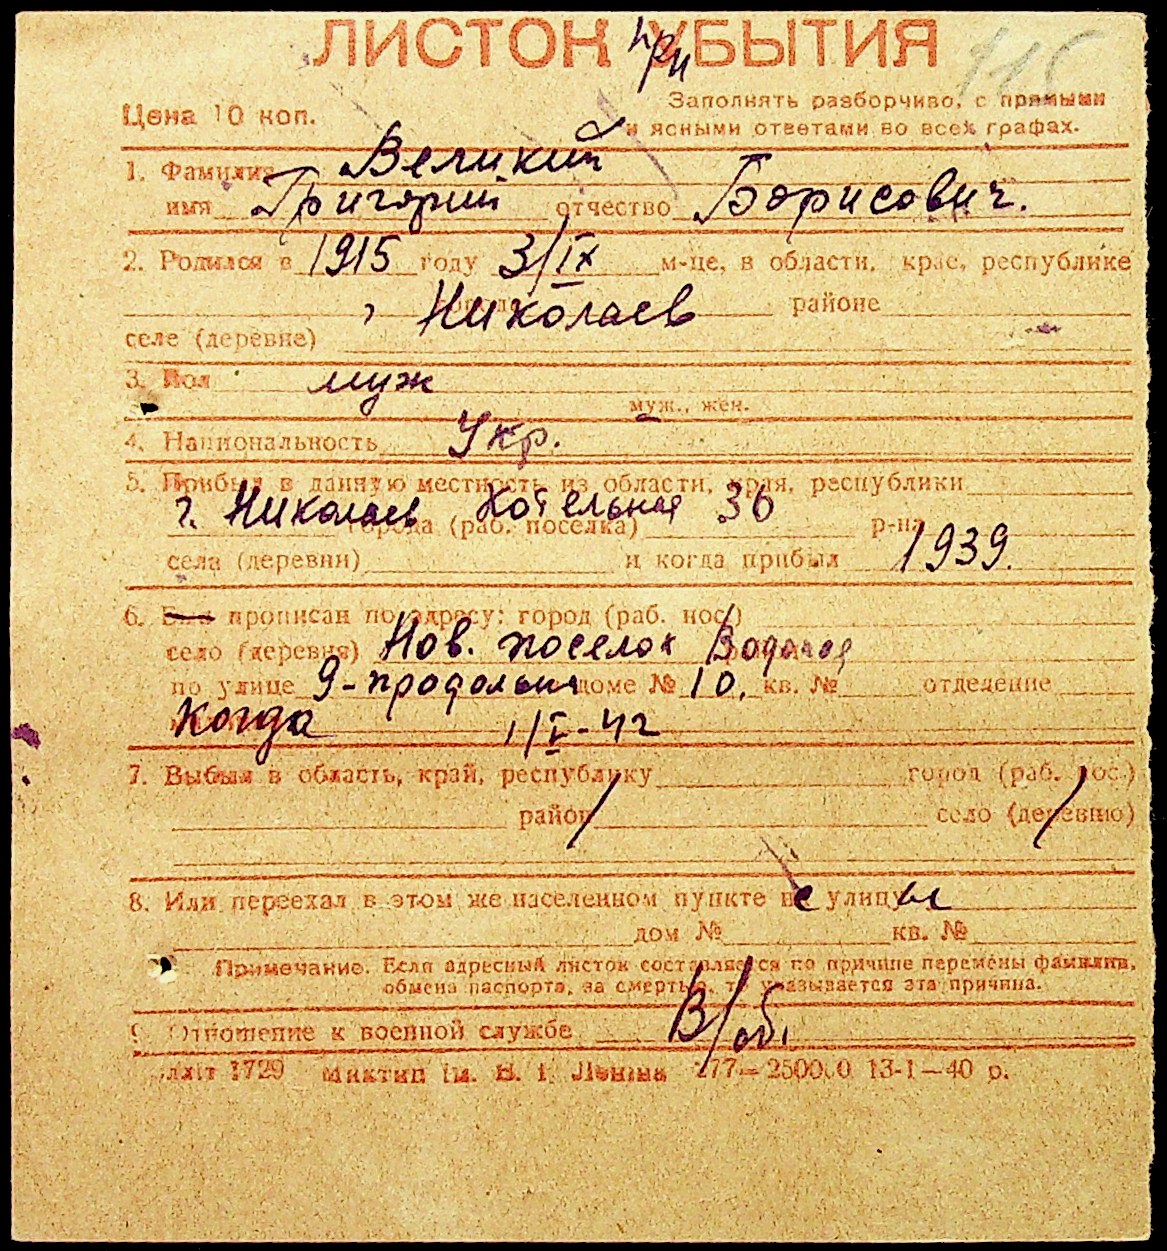 ЛИСТОК УБЫТИЯ
при
115
Цена 10 коп.
Заполнять разборчиво, с прямыми
и ясными ответами во всех графах.
1. Фамилия Великий
имя Григорий отчество Борисович.
2. Родился в 1915 году 3/IX м-це, в области, крае, республике
г. Николаев районе
селе (деревне)
3. Пол муж
муж., жен.
4. Национальность Укр.
5. Прибыл в данную местность из области, края, республики
г. Николаев Котельная 36
города (раб. поселка) р-на
села (деревни) и когда прибыл 1939.
6. прописан по адресу: город (раб. пос.)
село (деревня) Нов. поселок Водопой
по улице 9-продольная доме № 10. кв. № отделение
Когда 1/V-42
7. Выбыл в область, край, республику город (раб. пос.)
район село (деревню)
8. Или переехал в этом же населенном пункте с улицы
дом № кв. №
Примечание. Если адресный листок составляется по причине перемены фамилии,
обмена паспорта, за смертью, то указывается эта причина.
9. Отношение к военной службе В/об.
1729 Миктип ім. В. І. Леніна 277—250000 13-1—40 р.